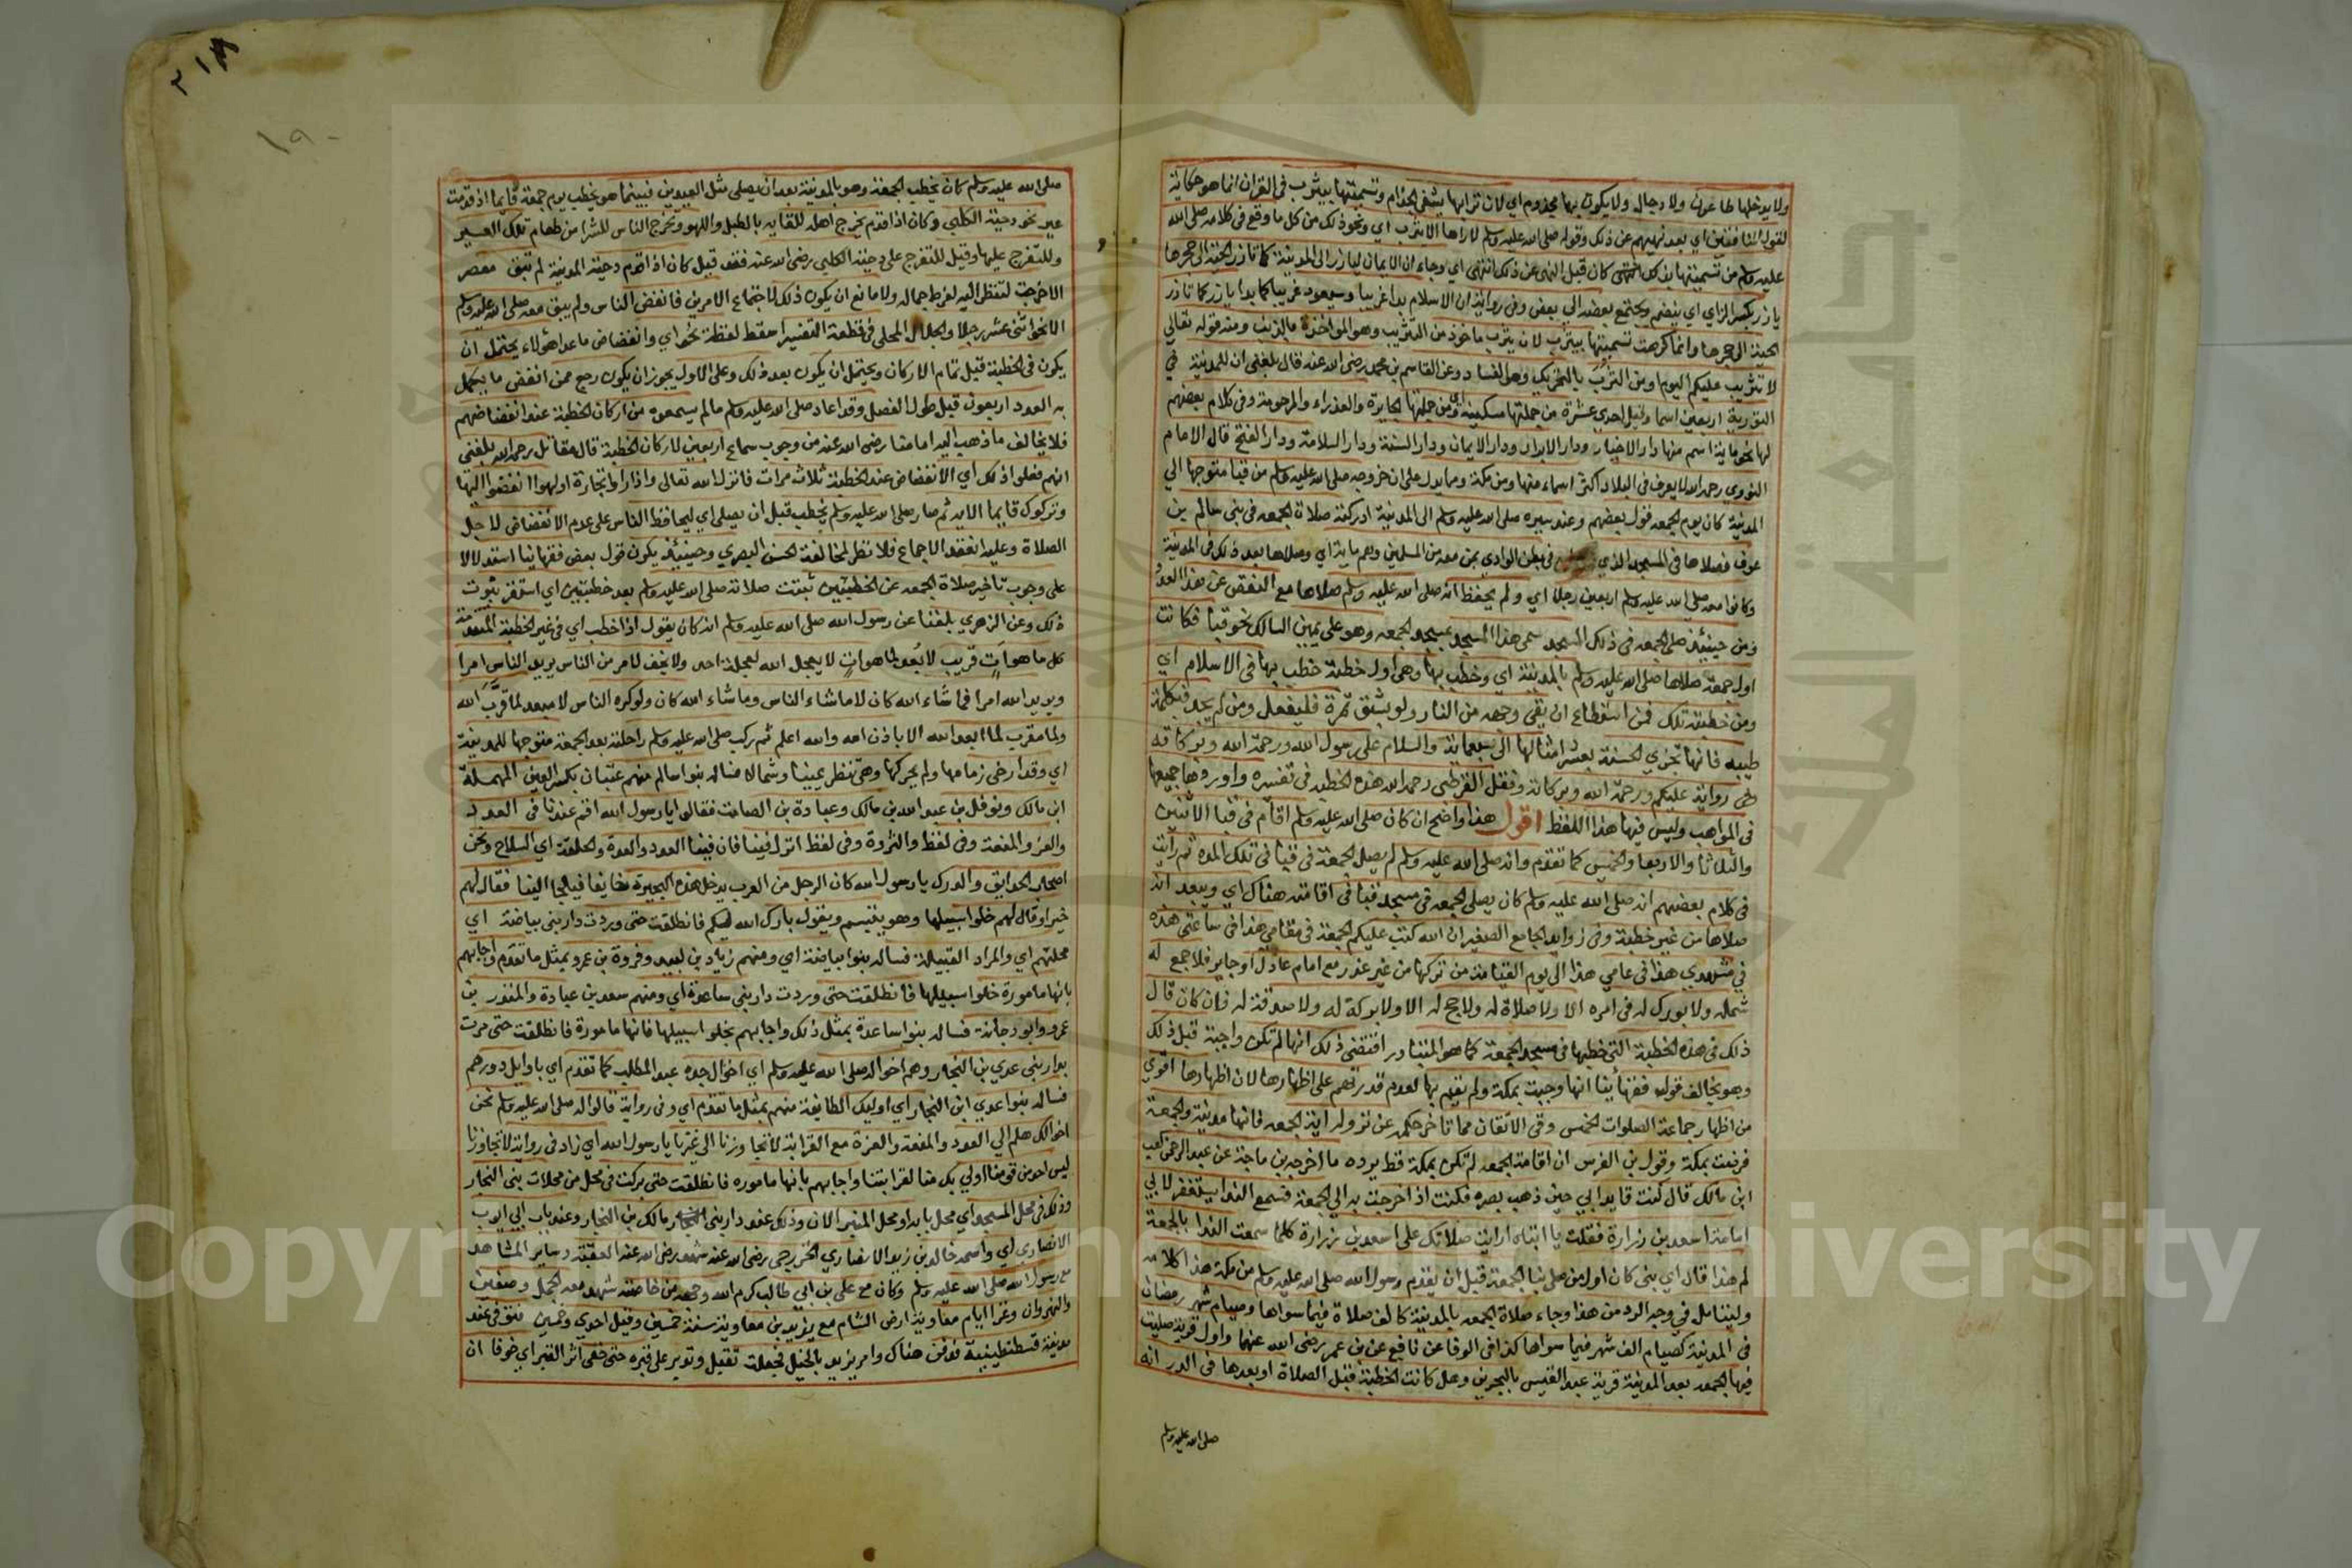 ولا يدخلها طاعون ولا دجال ولا يكون بها مجذوم اي لان ترابها يشفي الجذام وتسميتها بيثرب في القران انما هو حكاية
لقول المنافقين اي بعد نهيهم عن ذلك وقوله صلى الله عليه وسلم لا اراها الا يثرب اي ونحو ذلك من كل ما وقع في كلامه صلى الله
عليه وسلم من تسميتها بذلك كان قبل النهي عن ذلك انتهى اي وجاء ان الايمان ليأرز الى المدينة كما تأرز الحية الى جحرها
يأرز بكسر الزاي اي ينضم ويجتمع بعضه الى بعض وفي رواية ان الاسلام بدا غريبا وسيعود غريبا كما بدا يأرز كما تأرز
الحية الى جحرها وانما كرهت تسميتها بيثرب لان يثرب ماخوذ من التثريب وهو المواخذة بالذنب ومنه قوله تعالى
لا تثريب عليكم اليوم او من الثرب بالتحريك وهو الفساد وعن القاسم بن محمد رضي الله عنه قال بلغني ان للمدينة في
التورية اربعين اسما وقيل احدي عشرة من جملتها سكينة ومن جملتها الجابرة والعذراء والمرحومة وفي كلام بعضهم
لها نحو ماية اسم منها دار الاخيار ودار الابرار ودار الايمان ودار السنة ودار السلامة ودار الفتح قال الامام
النووي رحمه الله لا يعرف في البلاد اكثر اسماء منها ومن مكة ومما يدل على ان خروجه صلى الله عليه وسلم من قبا متوجها الي
المدينة كان يوم الجمعة قول بعضهم وعند سيره صلى الله عليه وسلم الى المدينة ادركته صلاة الجمعة في بني سالم بن
عوف فصلاها في المسجد الذي في بطن الوادي بمن معه من المسلمين وهم ماية اي وصلاها بعد ذلك في المدينة
وكانوا معه صلى الله عليه وسلم اربعين رجلا اي ولم يحفظ انه صلى الله عليه وسلم صلاها مع النقص عن هذا العدد
ومن حينئذ صلى الجمعة في ذلك المسجد سمي هذا المسجد بمسجد الجمعة وهو على يمين السالك نحو قبا فكانت
اول جمعة صلاها صلى الله عليه وسلم بالمدينة اي وخطب بها وهي اول خطبة خطب بها في الاسلام اي
ومن خطبته تلك فمن استطاع ان يقي وجهه من النار ولو بشق تمرة فليفعل ومن لم يجد فبكلمة
طيبه فانها تجزي الحسنة بعشر امثالها الى سبعماية والسلام على رسول الله ورحمة الله وبركاته
وفي رواية عليكم ورحمة الله وبركاته ونقل القرطبي رحمه الله هذه الخطبة في تفسيره واوردها جميعها
في المواهب وليس فيها هذا اللفظ اقول هذا واضح ان كان صلى الله عليه وسلم اقام في قبا الاثنين
والثلاثا والاربعا والخميس كما تقدم وانه صلى الله عليه وسلم لم يصل الجمعة في قبا في تلك المدة ثم رايت
في كلام بعضهم انه صلى الله عليه وسلم كان يصلي الجمعة في مسجد قبا في اقامته هناك اي ويبعد انه
صلاها من غير خطبة وفي زوايد الجامع الصغير ان الله كتب عليكم الجمعة في مقامي هذا في ساعتي هذه
في مشهدي هذا في عامي هذا الى يوم القيامة من تركها من غير عذر مع امام عادل او جاير فلا جمع له
شمله ولا بورك له في امره الا ولا صلاة له ولا حج له الا ولا بركة له ولا صدقة له فان كان قال
ذلك في هذه الخطبة التي خطبها في مسجد الجمعة كما هو المتبادر اقتضى ذلك انها لم تكن واجبة قبل ذلك
وهو يخالف قول فقهائنا انها وجبت بمكة ولم تقم بها لعدم قدرتهم على اظهارها لان اظهارها اقوي
من اظهار جماعة الصلوات الخمس وفي الاتقان مما تاخر حكمه عن نزوله اية الجمعة فانها مدنية والجمعة
فرضت بمكة وقول بن الغرس ان اقامة الجمعة لم تكن بمكة قط يرده ما اخرجه بن ماجة عن عبد الرحمن بن كعب
ابن مالك قال كنت قايد ابي حين ذهب بصره فكنت اذا خرجت به الى الجمعة فسمع الندا يستغفر لابي
امامة اسعد بن زرارة فقلت يا ابتاه ارايت صلاتك على اسعد بن زرارة كلما سمعت الندا بالجمعة
لم هذا قال اي بني كان اول من صلى بنا الجمعة قبل ان يقدم رسول الله صلى الله عليه وسلم من مكة هذا كلامه
وليتامل في وجه الرد من هذا وجاء صلاة الجمعة بالمدينة كالف صلاة فيما سواها وصيام شهر رمضان
في المدينة كصيام الف شهر فيما سواها كذا في الوفا عن نافع عن بن عمر رضي الله عنهما واول قرية صليت
فيها الجمعة بعد المدينة قرية عبد القيس بالبحرين وهل كانت الخطبة قبل الصلاة او بعدها في الدر انه
صلى الله عليه وسلم
٢١٨
١٩٠
صلى الله عليه وسلم كان يخطب الجمعة وهو بالمدينة بعد ان يصلي مثل العيدين فبينما هو يخطب يوم جمعة قايما اذ قدمت
عير نحو دحية الكلبي وكان اذا قدم يخرج اهله للقايه بالطبل واللهو ويخرج الناس للشرا من طعام تلك العير
وللتفرج عليها وقيل للتفرج على دحية الكلبي رضي الله عنه فقد قيل كان اذا قدم دحية المدينة لم تبق معصر
الا خرجت لتنظر اليه لفرط جماله ولا مانع ان يكون ذلك لاجتماع الامرين فانفض الناس ولم يبق معه صلى الله عليه وسلم
الا نحو اثني عشر رجلا والجلال المحلي في قطعة التفسير اسقط لفظة نحو اي وانفضاض ما عدا هؤلاء يحتمل ان
يكون في الخطبة قبل تمام الاركان ويحتمل ان يكون بعد ذلك وعلى الاول يجوز ان يكون رجع ممن انفض ما يكمل
به العدد اربعون قبل طول الفصل وقد اعاد صلى الله عليه وسلم ما لم يسمعوه من اركان الخطبة عند انفضاضهم
فلا يخالف ما ذهب اليه امامنا رضي الله عنه من وجوب سماع اربعين لاركان الخطبة قال مقاتل رحمه الله بلغني
انهم فعلوا ذلك اي الانفضاض عند الخطبة ثلاث مرات فانزل الله تعالى واذا راوا تجارة او لهوا انفضوا اليها
وتركوك قايما الاية ثم صار صلى الله عليه وسلم يخطب قبل ان يصلي اي ليحافظ الناس على عدم الانفضاض لاجل
الصلاة وعليه انعقد الاجماع فلا نظر لمخالفة الحسن البصري وحينئذ يكون قول بعض فقهائنا استدلالا
على وجوب تاخير صلاة الجمعة عن الخطبتين ثبتت صلاته صلى الله عليه وسلم بعد خطبتين اي استقر ثبوت
ذلك وعن الزهري بلغنا عن رسول الله صلى الله عليه وسلم انه كان يقول اذا خطب اي في غير الخطبة المتقدمة
كل ما هو آت قريب لا بعد لما هو آت لا يعجل الله لعجلة احد ولا يخف لامر من الناس يريد الناس امرا
ويريد الله امرا فما شاء الله كان لا ما شاء الناس وما شاء الله كان ولو كره الناس لا مبعد لما قرب الله
ولا مقرب لما ابعد الله الا باذن الله والله اعلم ثم ركب صلى الله عليه وسلم راحلته بعد الجمعة متوجها للمدينة
اي وقد ارخى زمامها ولم يحركها وهي تنظر يمينا وشمالا فساله بنوا سالم منهم عتبان بكسر العين المهملة
ابن مالك ونوفل بن عبد الله بن مالك وعبادة بن الصامت فقالوا يا رسول الله اقم عندنا في العدد
والعز والمنعة وفي لفظ والثروة وفي لفظ انزل فينا فان فينا العدد والعدة والحلقة اي السلاح ونحن
اصحاب الحدايق والدرك يا رسول الله كان الرجل من العرب يدخل هذه البحيرة خايفا فيلجا الينا فقال لهم
خيرا وقال لهم خلوا سبيلها وهو يتبسم ويقول بارك الله عليكم فانطلقت حتى وردت دار بني بياضة اي
محلتهم اي والمراد القبيلة فساله بنوا بياضة اي ومنهم زياد بن لبيد وفروة بن عمرو بمثل ما تقدم واجابهم
بانها مامورة خلوا سبيلها فانطلقت حتى وردت دار بني ساعدة اي ومنهم سعد بن عبادة والمنذر بن
عمرو وابو دجانة فساله بنوا ساعدة بمثل ذلك واجابهم بخلوا سبيلها فانها مامورة فانطلقت حتى مرت
بدار بني عدي بن النجار وهم اخواله صلى الله عليه وسلم اي اخوال جده عبد المطلب كما تقدم اي باوايل دورهم
فساله بنوا عدي ابن النجار اي اوليك الطايفة منهم بمثل ما تقدم اي وفي رواية قالوا له صلى الله عليه وسلم نحن
اخوالك هلم الي العدد والمنعة والعزة مع القرابة لا تجاوزنا الى غيرنا يا رسول الله اي زاد في رواية لا تجاوزنا
ليس احد من قومنا اولي بك منا لقرابتنا واجابهم بانها ماموره فانطلقت حتى بركت في محل من محلات بني النجار
وذلك في محل المسجد اي محل بابه او محل المنبر الان وذلك عند دار بني مالك بن النجار وعند باب ابي ايوب
الانصاري اي واسمه خالد بن زيد الانصاري الخزرجي رضي الله عنه شهد رضي الله عنه العقبة وساير المشاهد
مع رسول الله صلى الله عليه وسلم وكان مع علي بن ابي طالب كرم الله وجهه من خاصته شهد معه الجمل وصفين
والنهروان وغزا ايام معاوية ارض الشام مع يزيد بن معاوية سنة خمسين وقيل احدي وخمسين فتوفي عند
مدينة قسطنطينية فدفن هناك وامر يزيد بالخيل فجعلت تقبل وتدبر على قبره حتى خفي اثر القبر اي خوفا ان
Copyr n University